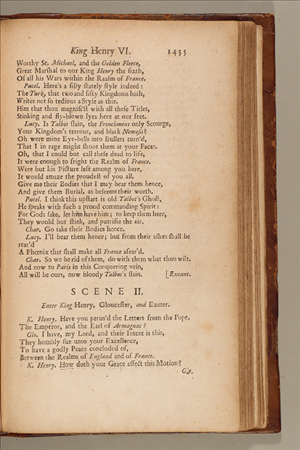 King Henry VI. 1435
Worthy St. Michael, and the Golden Fleece,
Great Marshal to our King Henry the sixth,
Of all his Wars within the Realm of France.
Pucel. Here's a silly stately style indeed:
The Turk, that two and fifty Kingdoms hath,
Writes not so tedious a Style as this.
Him that thou magnifi'st with all these Titles,
Stinking and fly-blown lyes here at our feet.
Lucy. Is Talbot slain, the Frenchmens only Scourge,
Your Kingdom's terrour, and black Nemesis?
Oh were mine Eye-balls into Bullets turn'd,
That I in rage might shoot them at your Faces.
Oh, that I could but call these dead to life,
It were enough to fright the Realm of France.
Were but his Picture left among you here,
It would amaze the proudest of you all.
Give me their Bodies that I may bear them hence,
And give them Burial, as beseems their worth.
Pucel. I think this upstart is old Talbot's Ghost,
He speaks with such a proud commanding Spirit:
For Gods sake, let him have him; to keep them here,
They would but stink, and putrifie the air.
Char. Go take their Bodies hence.
Lucy. I'll bear them hence; but from their ashes shall be
rear'd
A Phœnix that shall make all France afear'd.
Char. So we be rid of them, do with them what thou wilt.
And now to Paris in this Conquering vein,
All will be ours, now bloody Talbot's slain. [Exeunt.
SCENE II.
Enter King Henry, Gloucester, and Exeter.
K. Henry. Have you perus'd the Letters from the Pope,
The Emperor, and the Earl of Armagnac?
Glo. I have, my Lord, and their Intent is this,
They humbly sue unto your Excellence,
To have a godly Peace concluded of,
Between the Realms of England and of France.
K. Henry. How doth your Grace affect this Motion?